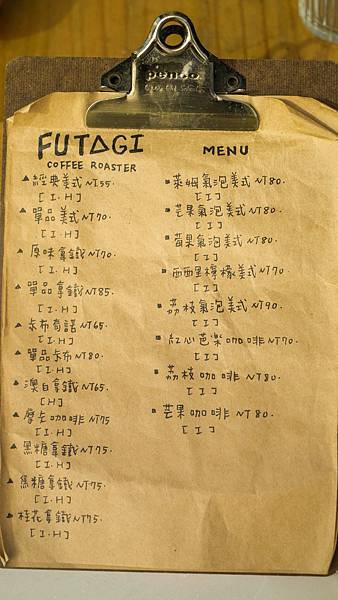 penco
FUTAGI
COFFEE ROASTER
▲經典美式 NT55.
[I.H]
▲單品美式 NT70.
[I.H]
▲原味拿鐵 NT70.
[I.H]
▲單品拿鐵 NT85.
[I.H]
▲卡布奇諾 NT65.
[I.H]
▲單品卡布 NT80.
[I.H]
▲澳白拿鐵 NT65.
[H]
▲摩卡咖啡 NT75
[I.H]
▲黑糖拿鐵 NT75.
[I.H]
▲焦糖拿鐵 NT75.
[I.H]
▲桂花拿鐵 NT75.
[I.H]
MENU
▪萊姆氣泡美式 NT80.
[I]
▪芒果氣泡美式 NT80.
[I]
▪莓果氣泡美式 NT80.
[I]
▪西西里檸檬美式 NT70
[I]
▪荔枝氣泡美式 NT90.
[I]
▪紅心芭樂咖啡 NT70.
[I]
▪荔枝咖啡 NT80.
[I]
▪芒果咖啡 NT80.
[I]